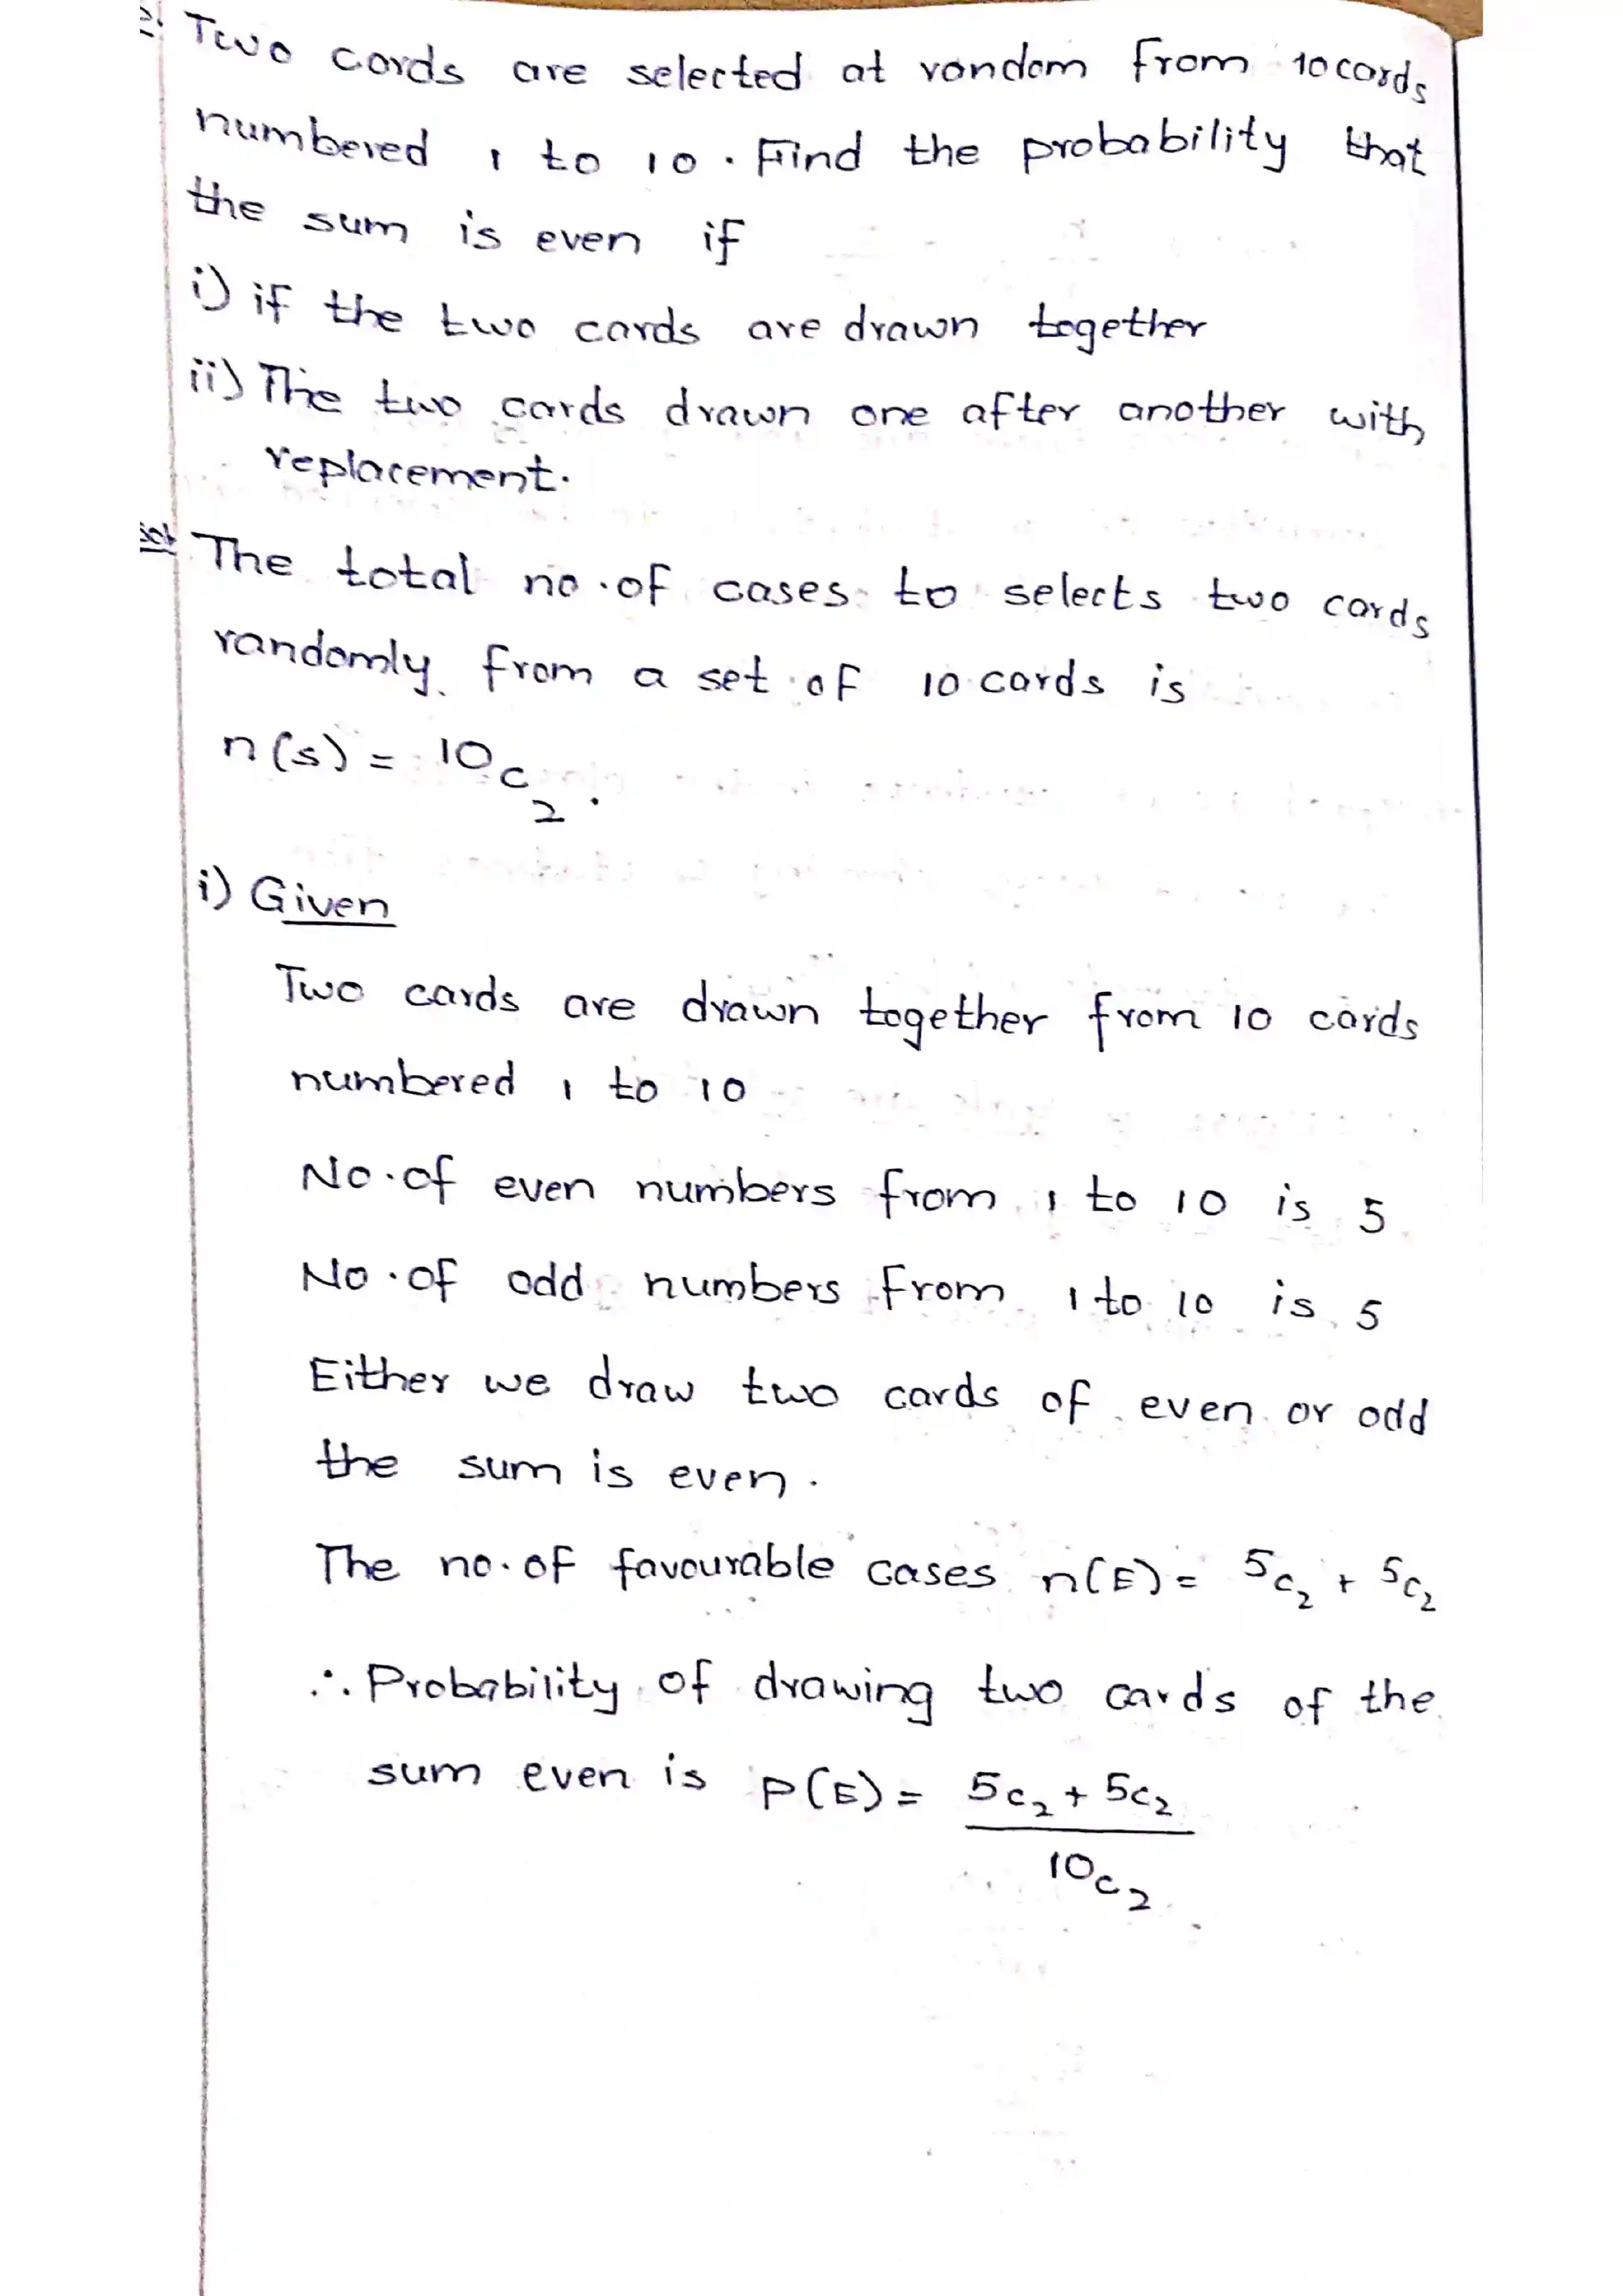 2. Two cards are selected at random from 10 cards
numbered 1 to 10. Find the probability that
the sum is even if
i) if the two cards are drawn together
ii) The two cards drawn one after another with
replacement.
Sol The total no. of cases to selects two cards
randomly from a set of 10 cards is
n(s) = 10c2.
i) Given
Two cards are drawn together from 10 cards
numbered 1 to 10
No. of even numbers from 1 to 10 is 5
No. of odd numbers from 1 to 10 is 5
Either we draw two cards of even or odd
the sum is even.
The no. of favourable cases n(E) = 5c2 + 5c2
∴ Probability of drawing two cards of the
sum even is P(E) = 5c2 + 5c2
10c2